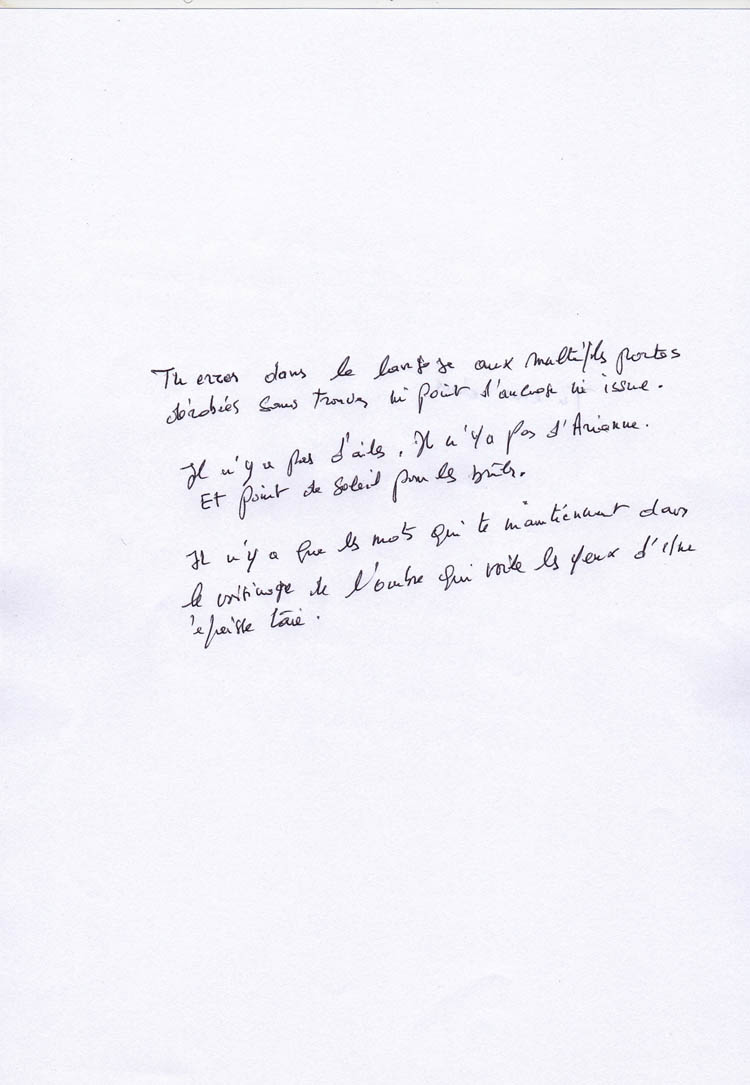 Tu erres dans le langage aux multiples portes
dérobées sans trouver ni point d'ancrage ni issue.
Il n'y a pas d'ailes. Il n'y a pas d'Arianne.
Et point de soleil pour les brûler.
Il n'y a que les mots qui te maintiennent dans
le voisinage de l'ombre qui voile les yeux d'une
épaisse taie.